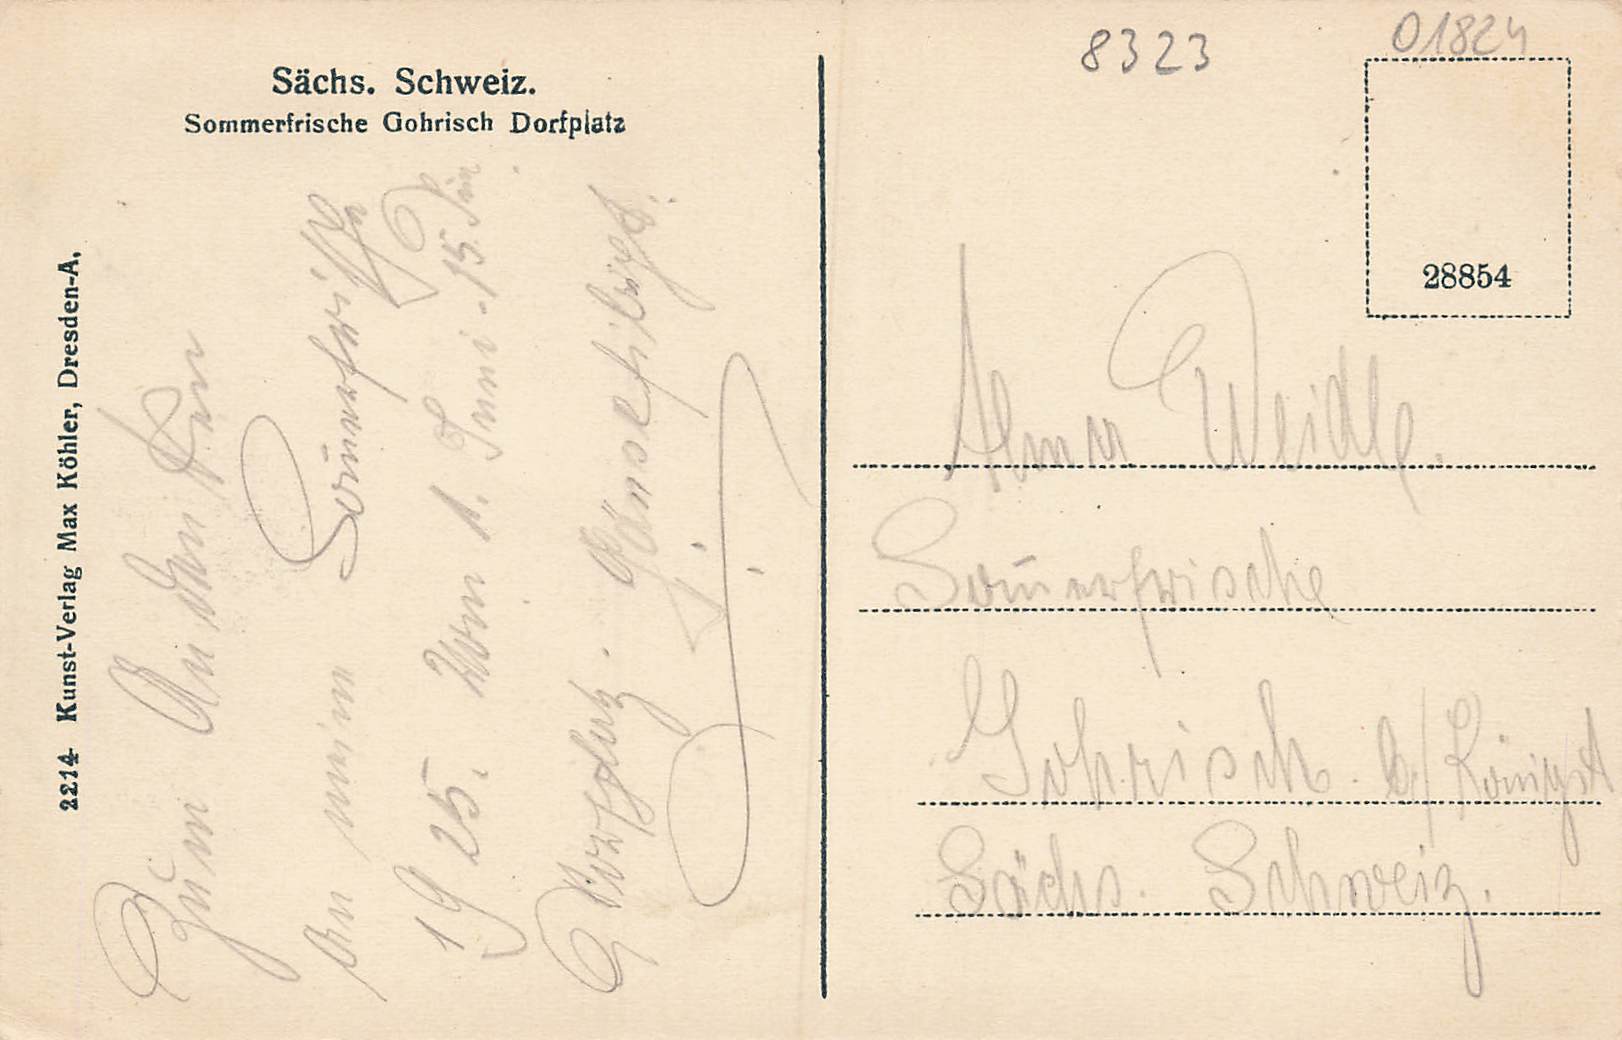 Sächs. Schweiz.
Sommerfrische Gohrisch Dorfplatz
2214 Kunst-Verlag Max Köhler, Dresden-A.
Zum Andenken
an meine Sommerfrische
1925. Vom 1. Juni - 15. Juni
8323
01824
28854
Alma Weidle.
Som̄erfrische
Gohrisch. b/ Königst
Sächs. Schweiz.